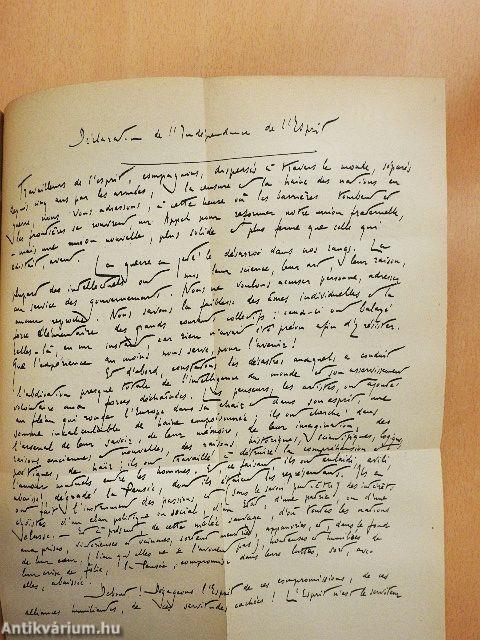 Déclaration de l'Indépendance de l'Esprit
Travailleurs de l'esprit, compagnons, dispersés à travers le monde, séparés
depuis cinq ans par les armées, la censure et la haine des nations en
guerre, nous vous adressons, à cette heure où les barrières tombent et
les frontières se rouvrent, un Appel pour reformer notre union fraternelle,
– mais une union nouvelle, plus solide et plus ferme que celle qui
existait avant.
La guerre a jeté le désarroi dans nos rangs. La
plupart des intellectuels ont mis leur science, leur art, leur raison,
au service des gouvernements. Nous ne voulons accuser personne, adresser
aucun reproche. Nous savons la faiblesse des âmes individuelles et la
force élémentaire des grands courants collectifs : ceux-ci ont balayé
celles-là, en un instant, car rien n'avait été prévu afin d'y résister.
Que l'expérience au moins nous serve, pour l'avenir !
Et d'abord, constatons les désastres auxquels a conduit
l'abdication presque totale de l'intelligence du monde et son asservissement
volontaire aux forces déchaînées. Les penseurs, les artistes, ont ajouté
au fléau qui ronge l'Europe dans sa chair et dans son esprit, une
somme incalculable de haine empoisonnée ; ils ont cherché dans
l'arsenal de leur savoir, de leur mémoire, de leur imagination, des
raisons anciennes et nouvelles, des raisons historiques, scientifiques, logiques,
poétiques, de haïr ; ils ont travaillé à détruire la compréhension et
l'amour mutuels entre les hommes. Et, ce faisant, ils ont enlaidi, avili,
abaissé, dégradé la Pensée, dont ils étaient les représentants. Ils en
ont fait l'instrument des passions et (sans le savoir, peut-être) des intérêts
égoïstes d'un clan politique ou social, d'un État, d'une patrie, ou d'une
classe. – Et à présent, de cette mêlée sauvage, d'où toutes les nations
aux prises, victorieuses et vaincues, sortent meurtries, appauvries, et, dans le fond
de leur cœur, (bien qu'elles ne se l'avouent pas), honteuses et humiliées de
leur crise de folie, la Pensée, compromise dans leurs luttes, sort, avec
elles, abaissée.
Debout ! Dégageons l'Esprit de ces compromissions, de ces
alliances humiliantes, de ces servitudes cachées ! L'Esprit n'est le serviteur
Antikvárium.hu